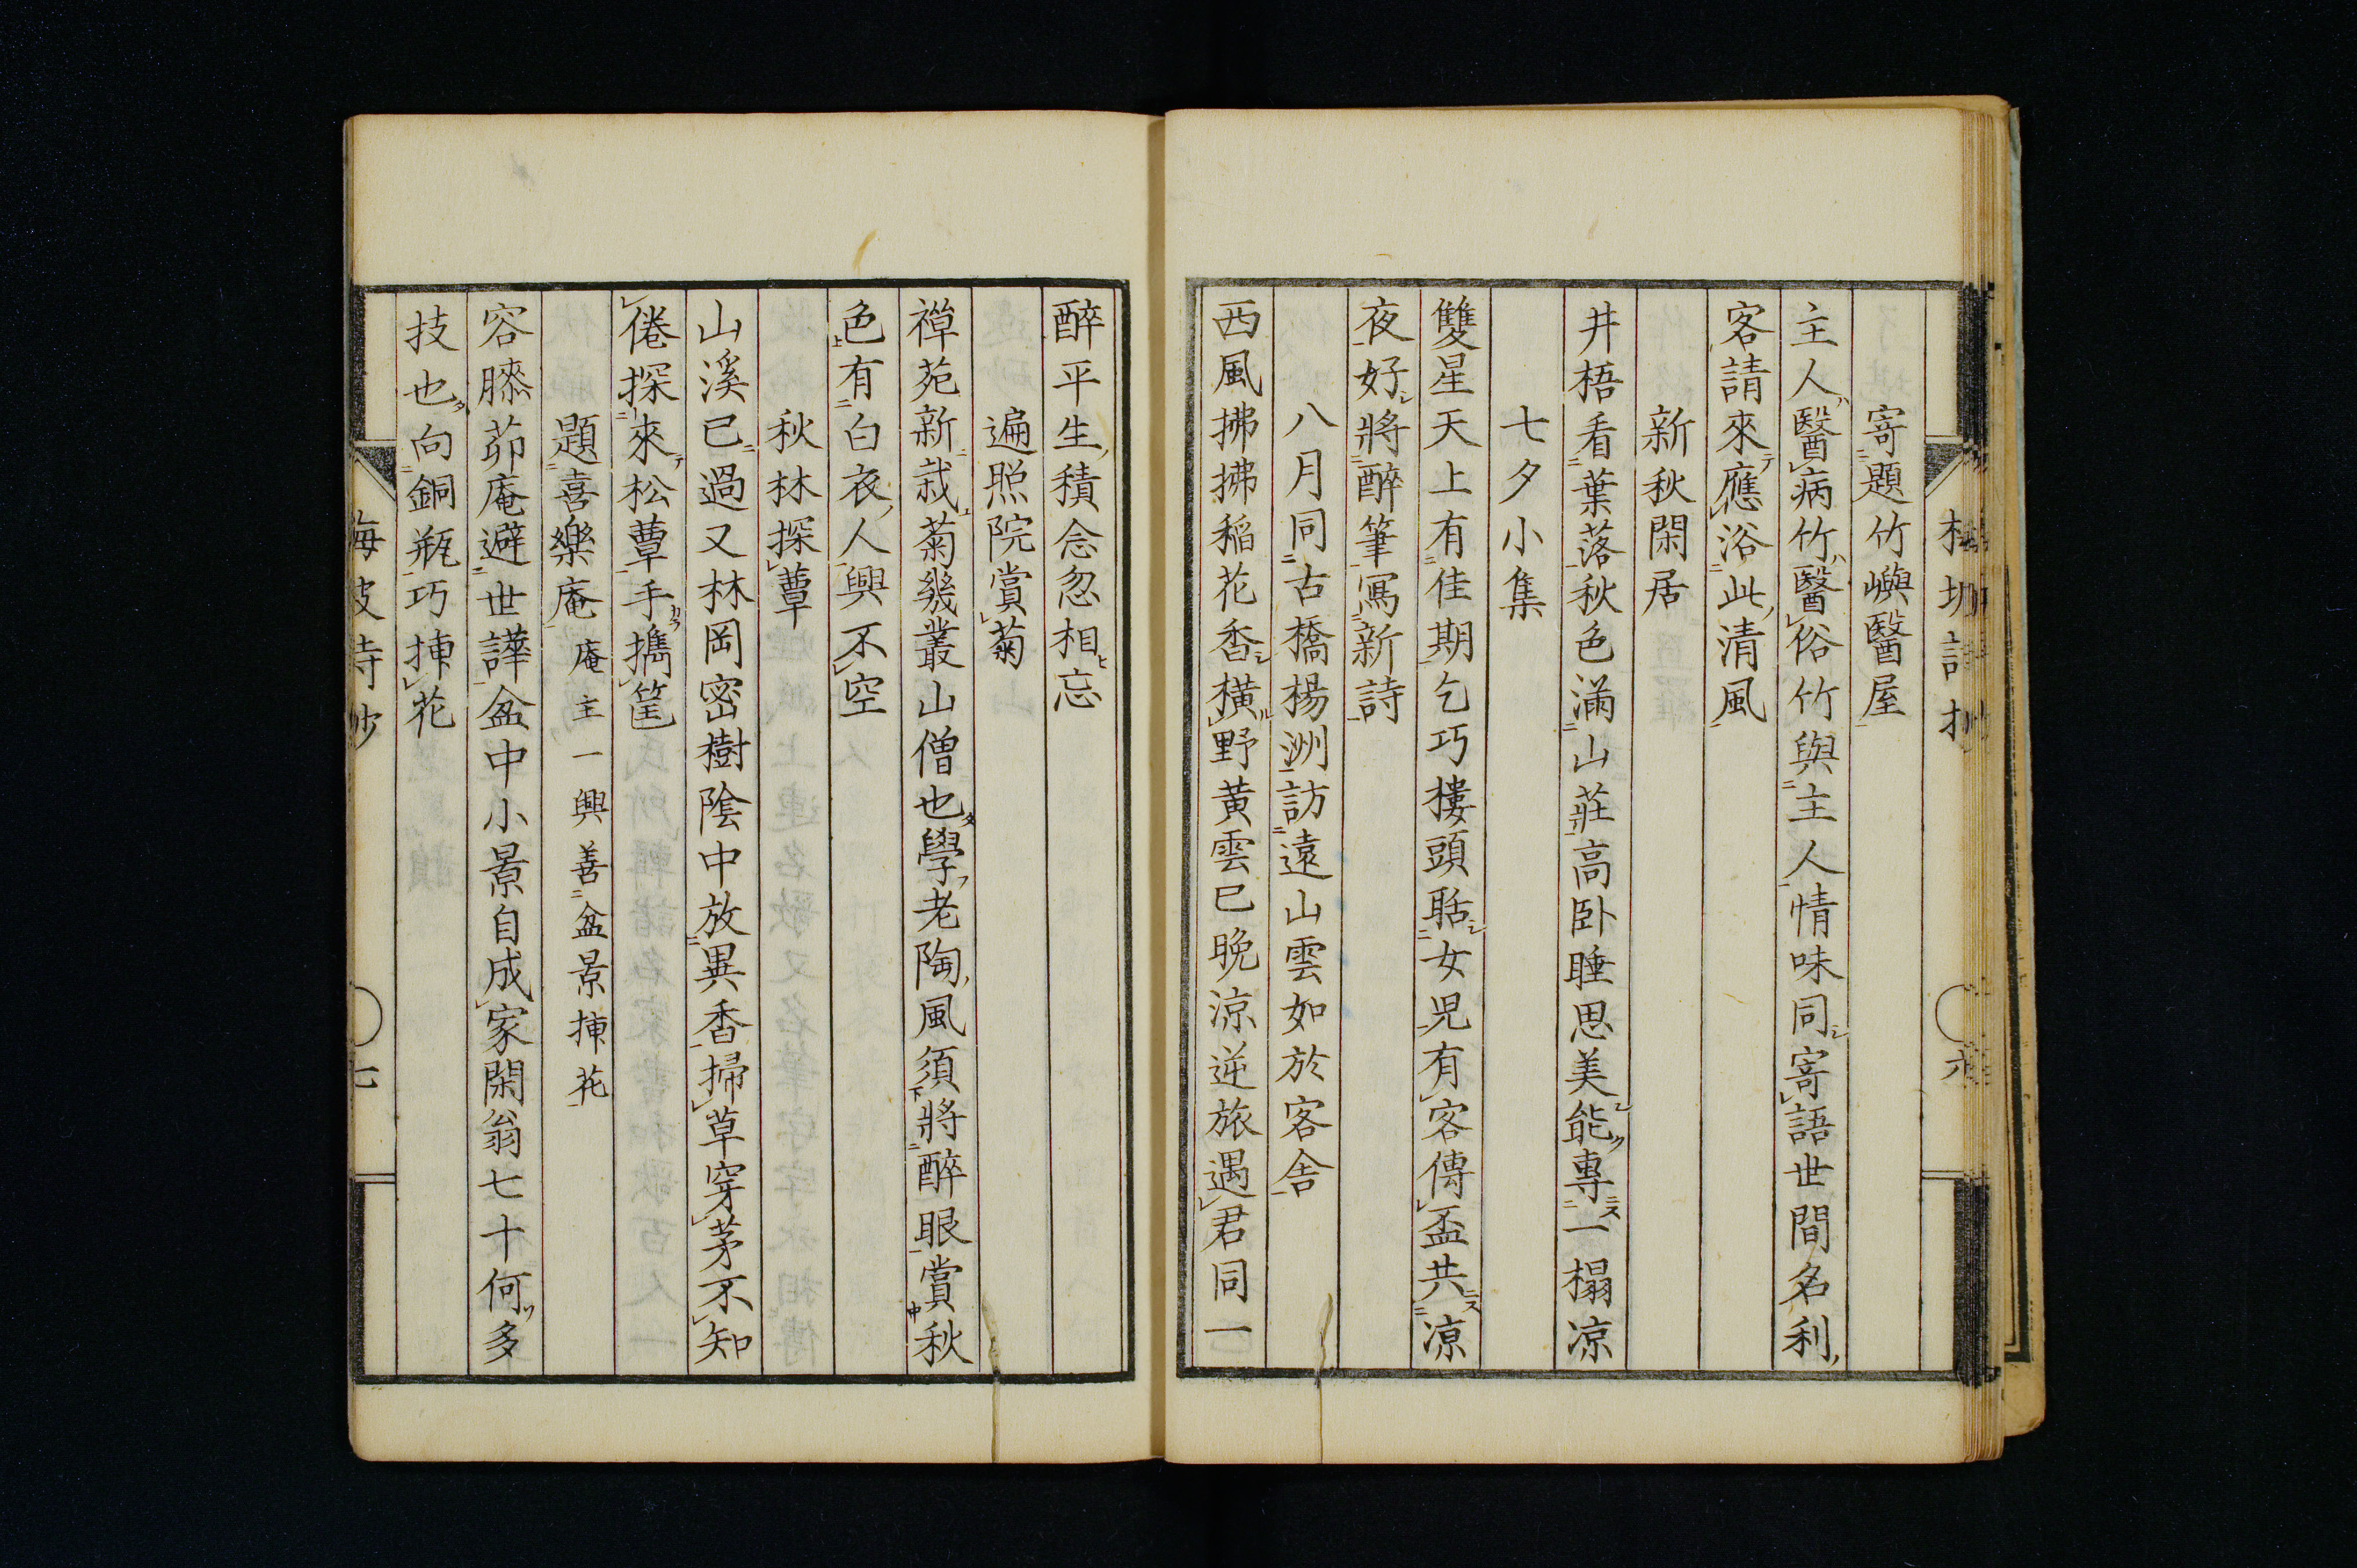 寄題竹嶼醫屋
主人醫病竹醫俗竹與主人情味同寄語世間名利
客請來應浴此清風
新秋閑居
井梧看葉落秋色滿山莊高臥睡思美能專一榻凉
七夕小集
雙星天上有佳期乞巧樓頭聒女児有客傳盃共凉
夜好將醉筆寫新詩
八月同古橋楊洲訪遠山雲如於客舎
西風拂拂稲花香橫野黄雲已晩涼逆旅遇君同一
醉平生積念忽相忘
遍照院賞菊
禅苑新栽菊幾叢山僧也學老陶風須將醉眼賞秋
色有白衣人興不空
秋林探蕈
山溪已過又林岡密樹陰中放異香掃草穿茅不知
倦探來松蕈手擕筐
題喜樂庵 庵主一興善盆景揷花
容膝茆庵避世譁盆中小景自成家閑翁七十何多
技也向銅瓶巧揷花
梅坡詩抄 七